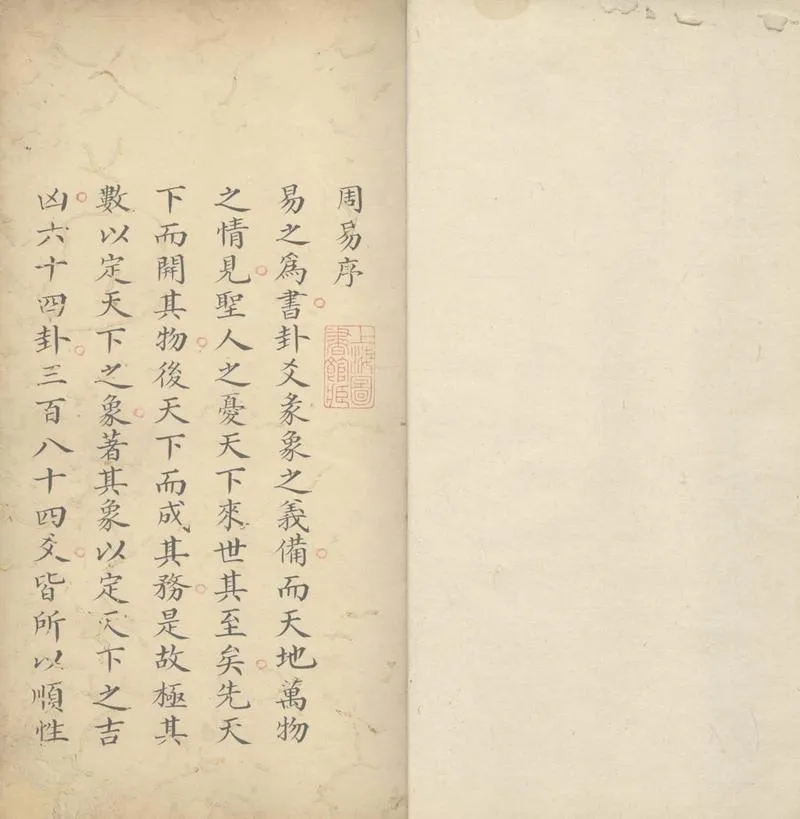 周易序
易之爲書卦爻彖象之義備而天地萬物
之情見聖人之憂天下來世其至矣先天
下而開其物後天下而成其務是故極其
數以定天下之象著其象以定天下之吉
凶六十四卦三百八十四爻皆所以順性
上海圖
書館臧